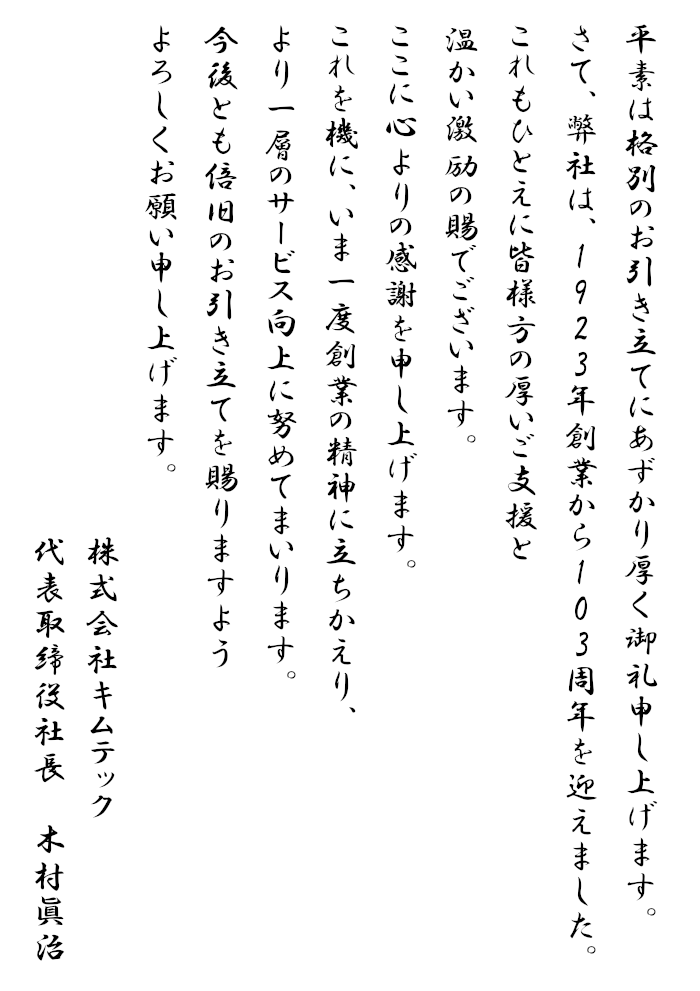 平素は格別のお引き立てにあずかり厚く御礼申し上げます。
さて、弊社は、1923年創業から103周年を迎えました。
これもひとえに皆様方の厚いご支援と
温かい激励の賜でございます。
ここに心よりの感謝を申し上げます。
これを機に、いま一度創業の精神に立ちかえり、
より一層のサービス向上に努めてまいります。
今後とも倍旧のお引き立てを賜りますよう
よろしくお願い申し上げます。
株式会社キムテック
代表取締役社長　木村眞治